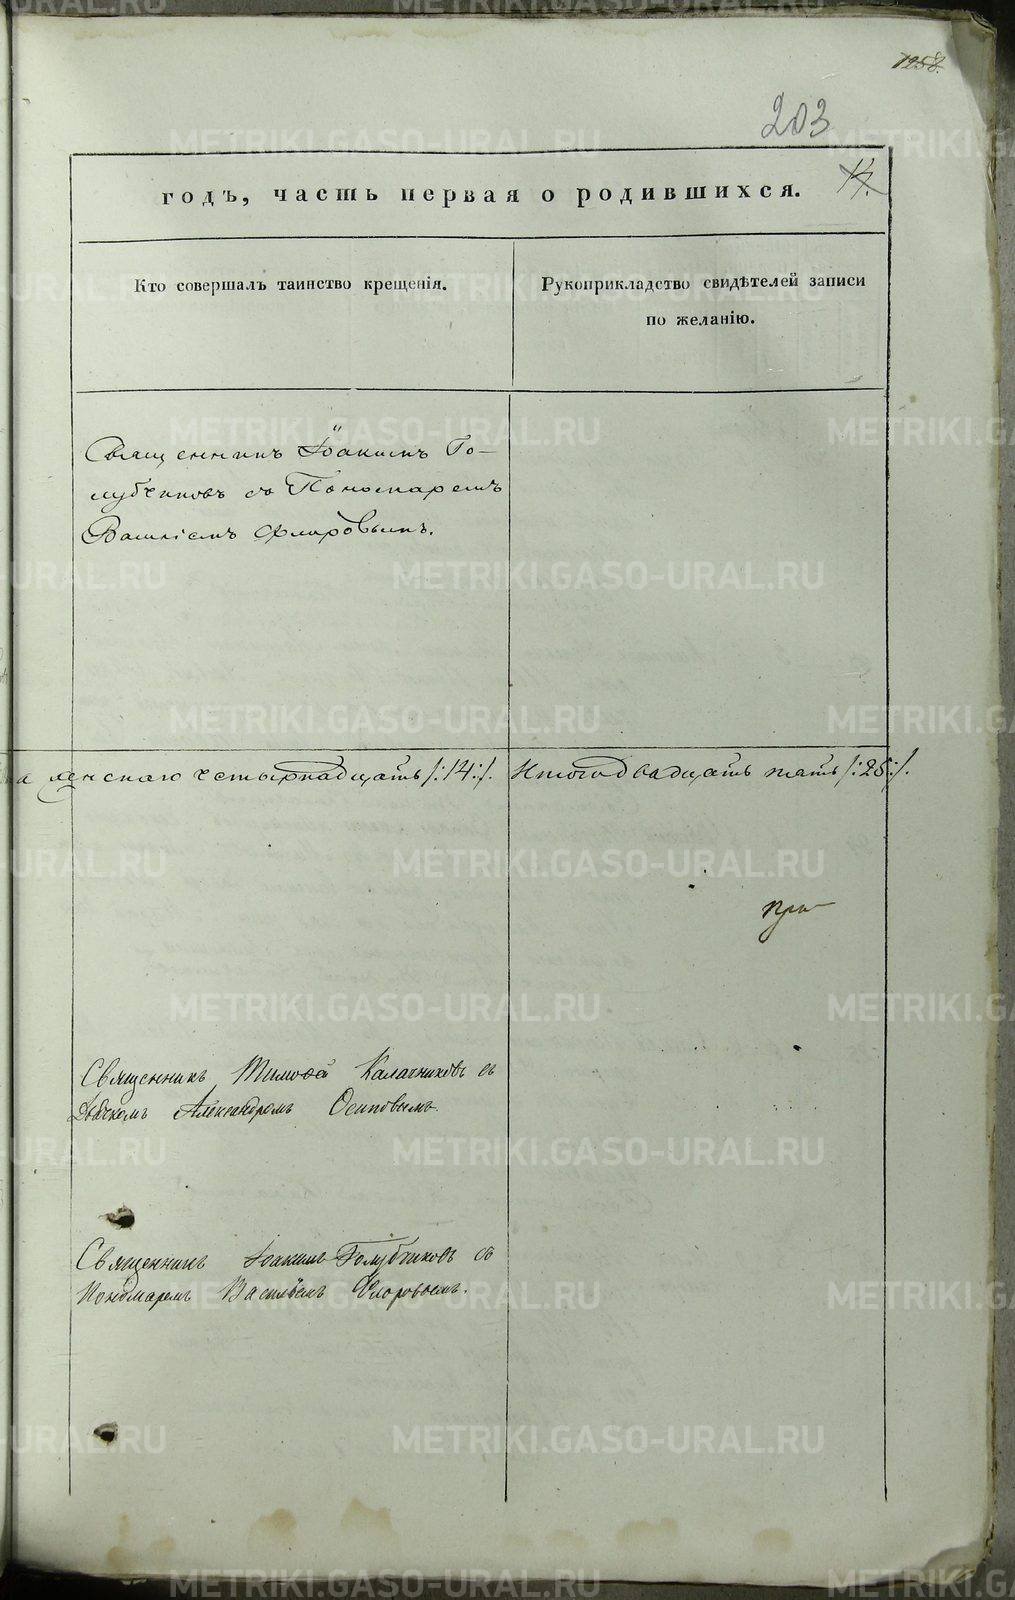 1258.
203
годъ, часть первая о родившихся.
14.
Кто совершалъ таинство крещенія.
Рукоприкладство свидѣтелей записи
по желанію.
Священникъ Іоакимъ Го-
лубчиковъ со Пономаремъ
Василіемъ Флоровымъ.
женскаго четырнадцать /:14:/. Итого двадцать пять /:25:/.
при
Священникъ Тимофей Калачниковъ съ
Дьячкомъ Александромъ Осиповымъ.
Священникъ Іоакимъ Голубчиковъ съ
Пономаремъ Василіемъ Флоровымъ.
METRIKI.GASO-URAL.RU